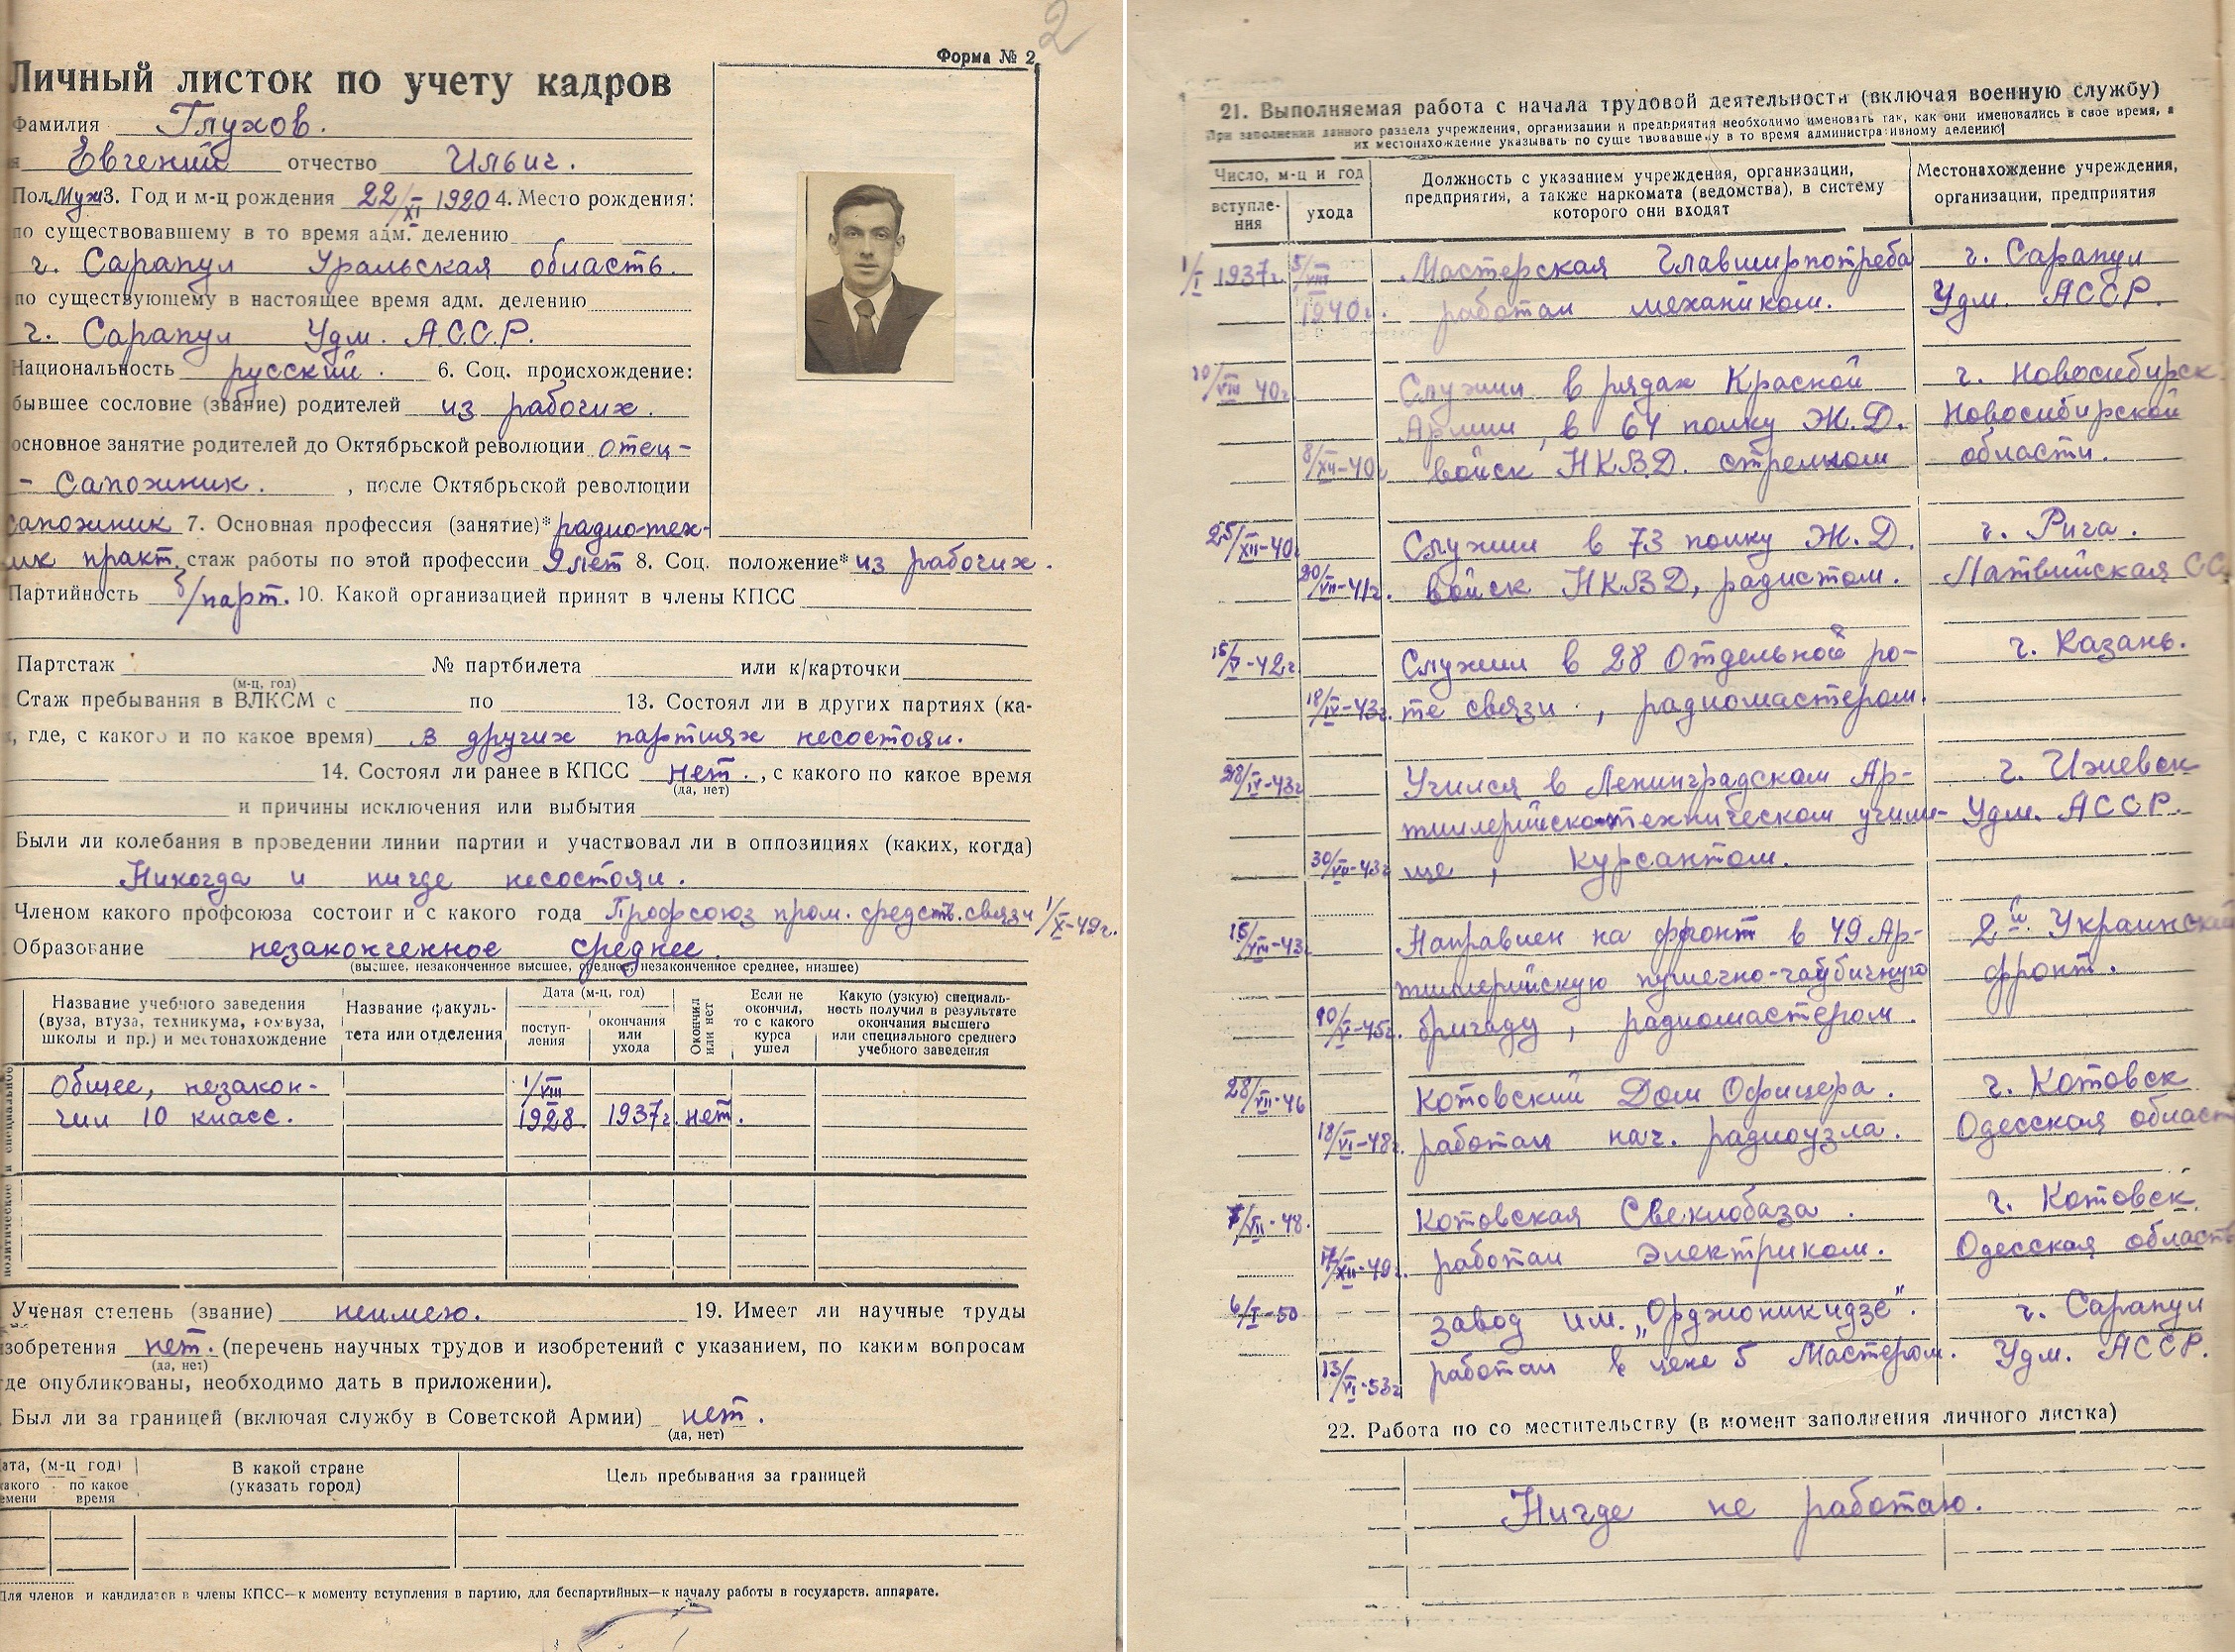 2
Форма № 2
Личный листок по учету кадров
Фамилия Глухов.
Евгений отчество Ильич.
Пол Муж 3. Год и м-ц рождения 22/XI 1920 4. Место рождения:
по существовавшему в то время адм. делению
г. Сарапул Уральская область.
по существующему в настоящее время адм. делению
г. Сарапул Удм. А.С.С.Р.
Национальность русский. 6. Соц. происхождение:
бывшее сословие (звание) родителей из рабочих.
основное занятие родителей до Октябрьской революции отец-
- Сапожник. , после Октябрьской революции
сапожник 7. Основная профессия (занятие)* радио-тех-
ник практ. стаж работы по этой профессии 9 лет 8. Соц. положение* из рабочих.
Партийность б/парт. 10. Какой организацией принят в члены КПСС
Партстаж № партбилета или к/карточки
(м-ц, год)
Стаж пребывания в ВЛКСМ с по 13. Состоял ли в других партиях (ка-
, где, с какого и по какое время) в других партиях несостоял.
14. Состоял ли ранее в КПСС нет. , с какого по какое время
(да, нет)
и причины исключения или выбытия
Были ли колебания в проведении линии партии и участвовал ли в оппозициях (каких, когда)
Никогда и нигде несостоял.
Членом какого профсоюза состоит и с какого года Профсоюз пром. средств. связи 1/X-49г.
Образование незаконченное среднее.
(высшее, незаконченное высшее, среднее, незаконченное среднее, низшее)
Название учебного заведения (вуза, втуза, техникума, комвуза, школы и пр.) и местонахождение
Название факуль-тета или отделения
Дата (м-ц, год)
поступ-ления
окончания или ухода
Окончил или нет
Если не окончил, то с какого курса ушел
Какую (узкую) специаль-ность получил в результате окончания высшего или специального среднего учебного заведения
политическое и специальное
Общее, незакон- 1/VIII
чил 10 класс. 1928. 1937г. нет.
Ученая степень (звание) неимею. 19. Имеет ли научные труды
изобретения нет. (перечень научных трудов и изобретений с указанием, по каким вопросам
(да, нет)
где опубликованы, необходимо дать в приложении).
Был ли за границей (включая службу в Советской Армии) нет.
(да, нет)
дата, (м-ц год)
какого времени
по какое время
В какой стране (указать город)
Цель пребывания за границей
Для членов и кандидатов в члены КПСС—к моменту вступления в партию, для беспартийных—к началу работы в государств. аппарате.
21. Выполняемая работа с начала трудовой деятельности (включая военную службу)
При заполнении данного раздела учреждения, организации и предприятия необходимо именовать так, как они именовались в свое время, а
их местонахождение указывать по существовавшему в то время административному делению
Число, м-ц и год
вступле-ния
ухода
Должность с указанием учреждения, организации, предприятия, а также наркомата (ведомства), в систему которого они входят
Местонахождение учреждения, организации, предприятия
1/I 1937г. 5/VIII Мастерская Главширпотреба г. Сарапул
1940г. работал механиком. Удм. АССР.
10/VIII 40г. Служил в рядах Красной г. Новосибирск
Армии, в 64 полку Ж.Д. Новосибирской
8/XII-40г войск НКВД. стрелком области.
25/XII-40. Служил в 73 полку Ж.Д. г. Рига.
20/VII-41г. войск НКВД, радистом. Латвийская СС
15/V-42г. Служил в 28 Отдельной ро- г. Казань.
18/IV-43г. те связи , радиомастером.
28/IV-43г Учился в Ленинградском Ар- г. Ижевск
тиллерийско-техническом учили- Удм. АССР.
30/VII-43г ще , курсантом.
15/VIII-43. Направлен на фронт в 49 Ар- 2й Украинский
тиллерийскую пушечно-гаубичную фронт.
10/V-45г. бригаду , радиомастером.
28/VII-46 Котовский Дом Офицера. г. Котовск
18/VI-48г. работал нач. радиоузла. Одесская област
7/VII-48. Котовская Свеклобаза. г. Котовск
17/XII-49г. работал Электриком. Одесская область
6/I-50 завод им. „Орджоникидзе". г. Сарапул
13/VI-53г работал в цехе 5 Мастером. Удм. АССР.
22. Работа по со местительству (в момент заполнения личного листка)
Нигде не работаю.